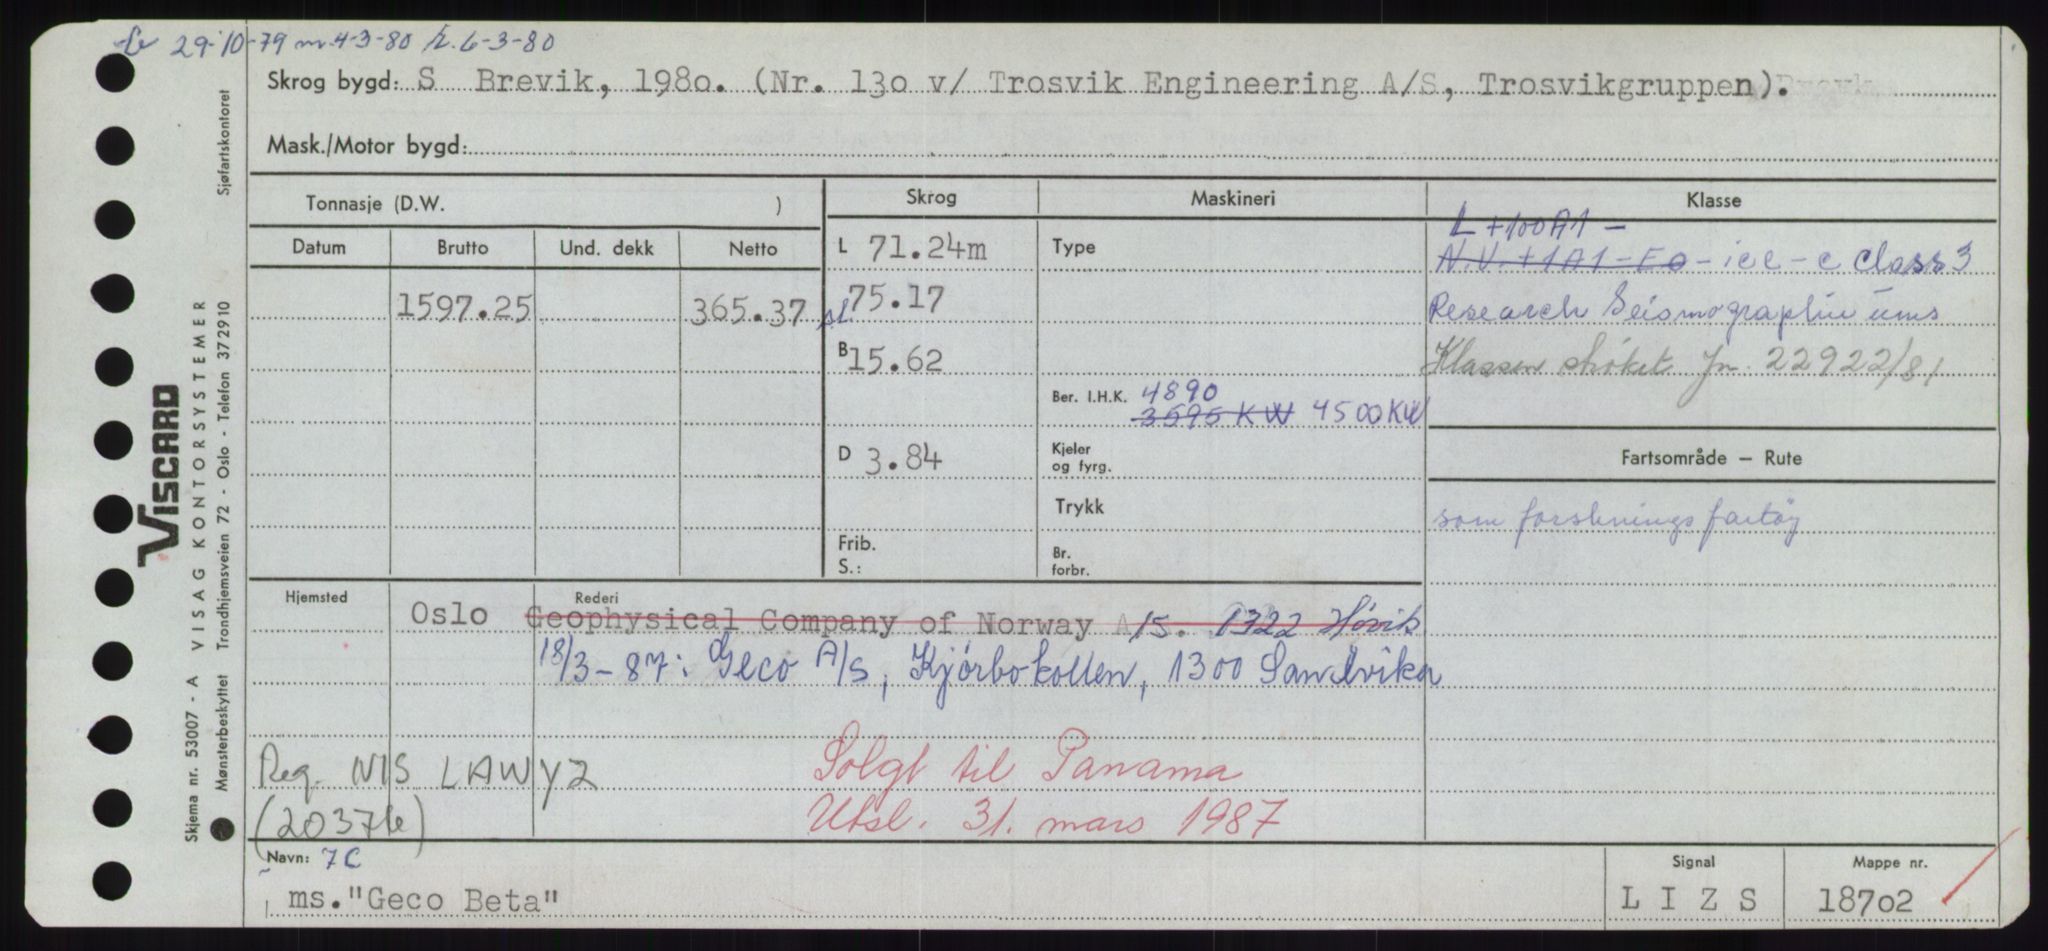 29-10-79 m. 4-3-80 k. 6-3-80
Skrog bygd: S Brevik, 1980. (Nr. 130 v/ Trosvik Engineering A/S, Trosvikgruppen).
Mask./Motor bygd:
Tonnasje (D.W. ) Skrog Maskineri Klasse
Datum Brutto Und. dekk Netto
L 71.24m Type
L +100A1 -
N.V. +1A1-EO - ice - c Class 3
1597.25 365.37 75.17
Research Seismographic ums
B 15.62
Klassen strøket Jn. 22922/81
Ber. I.H.K. 4890
3595 KW 4500 KW
D 3.84 Kjeler og fyrg.
Fartsområde — Rute
Trykk
som forsknings fartøy
Frib.
S.:
Br. forbr.
Hjemsted Rederi
Oslo Geophysical Company of Norway A/S. 1322 Høvik
18/3-87: Geco A/S, Kjørbokollen, 1300 Sandvika
Reg. NIS LAWY2
Solgt til Panama
(20376)
Utsl. 31. mars 1987
Navn: 7C
ms."Geco Beta"
Signal
L I Z S
Mappe nr.
18702
VISCARD
Skjema nr. 53007 - A VISAG KONTORSYSTEMER
Mønsterbeskyttet Trondhjemsveien 72 - Oslo - Telefon 372910 Sjøfartskontoret